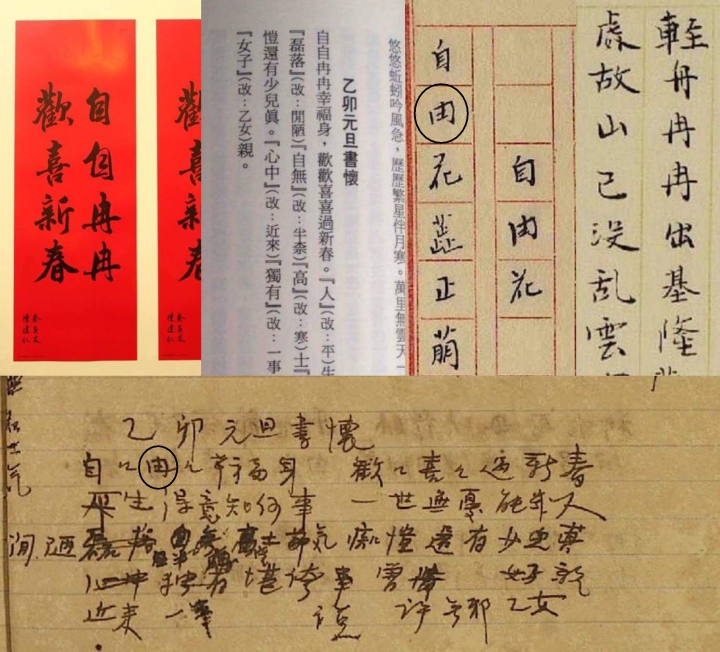 自自冉冉
歡喜新春
蔡英文
陳建仁
歡喜新春
悠悠蚯蚓吟風急，歷歷繁星伴月寒。萬里無雲天一
乙卯元旦書懷
自自冉冉幸福身，歡歡喜喜過新春。『人』(改：平)生
『磊落』(改：閒陋)『自無』(改：半柰)『高』(改：寒)士
愷還有少兒眞。『心中』(改：近來)『獨有』(改：一事
『女子』(改：乙女)親。
自由花
自由花蕊正萌
輕舟冉冉出基隆
處故山已没乱雲
乙卯元旦書懷
自々由々幸福身 歡々喜々過新春
平生得意知何事 一世無憂能幾人
閒陋 磊落 自無 高士 節氣 痴愷還有少兒真
心中 獨有 堪誇事 女子親
近來 一事 許 乙女